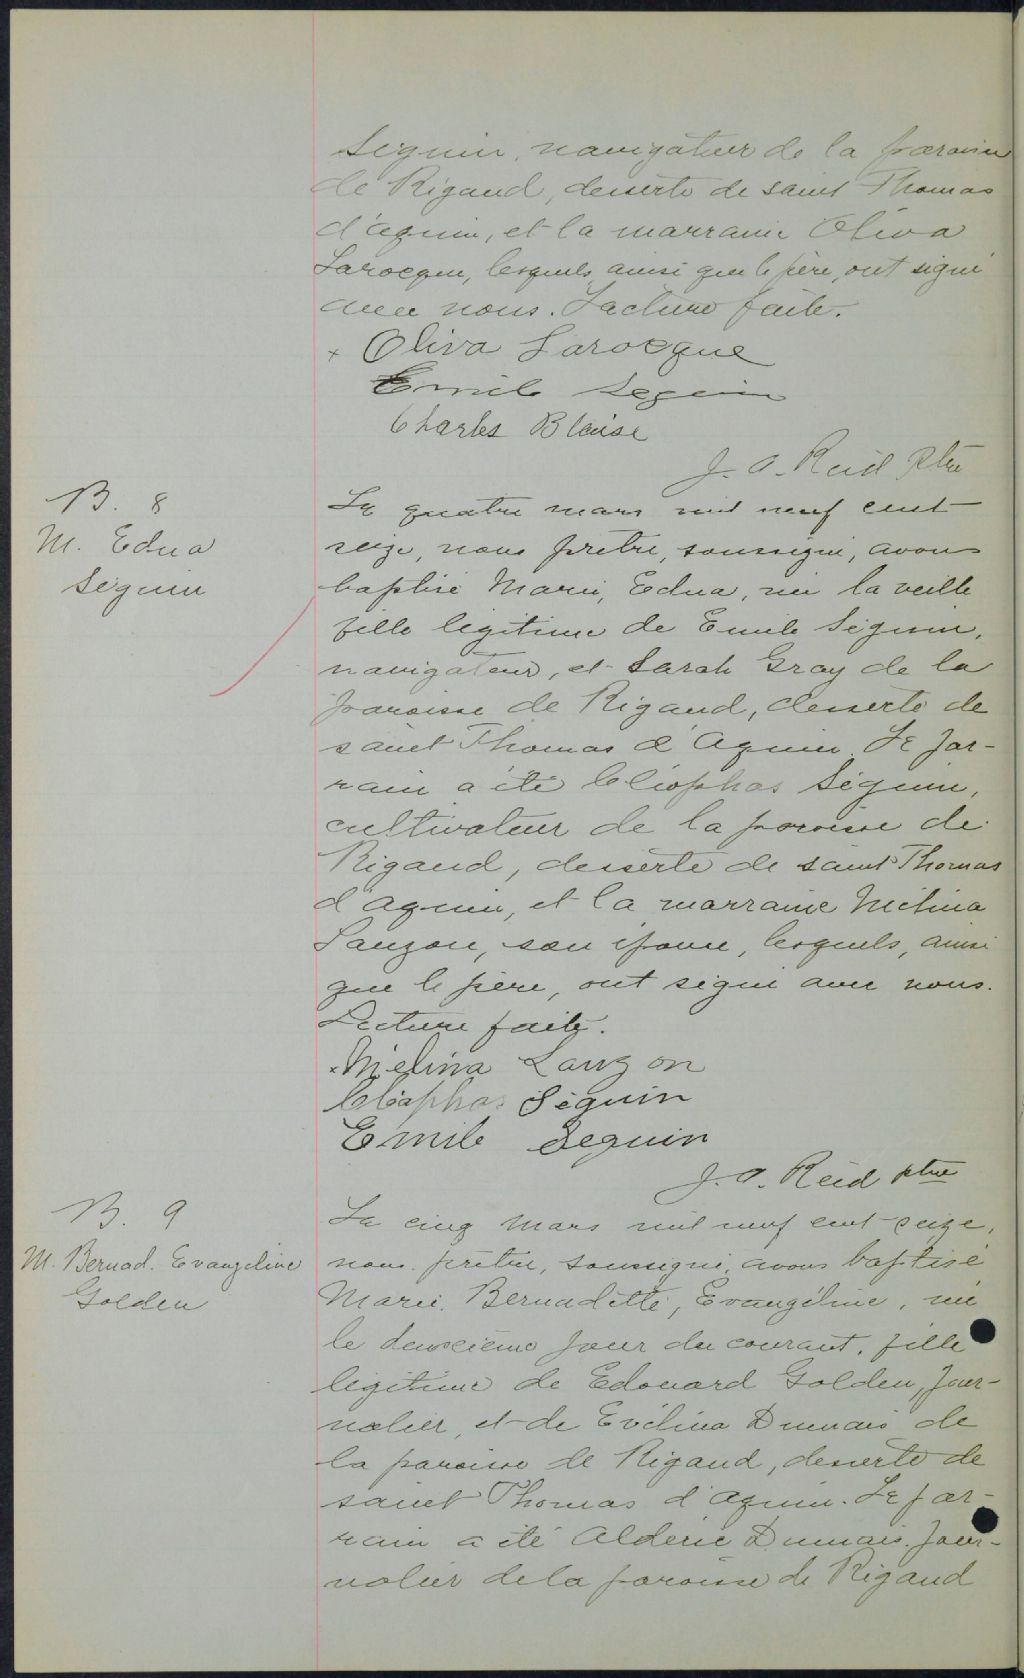 Séguin, navigateur de la paroisse
de Rigaud, desserte de saint Thomas
d'aquin, et la marraine Oliva
Larocque, lesquels, ainsi que le père, ont signé
avec nous. Lecture faite.
x Oliva Larocque
Emile Seguin
Charles Blaise
J. A. Reid Ptre
B. 8
M. Edna
Séguin
Le quatre mars mil neuf cent
seize, nous prêtre, soussigné, avons
baptisé Marie, Edna, née la veille
fille légitime de Emile Séguin,
navigateur, et Sarah Gray de la
paroisse de Rigaud, desserte de
saint Thomas d'Aquin. Le par-
rain a été Cléophas Séguin,
cultivateur de la paroisse de
Rigaud, desserte de saint Thomas
d'aquin, et la marraine Mélina
Lauzon, son épouse, lesquels, ainsi
que le père, ont signé avec nous.
Lecture faite.
x Mélina Lauzon
Cléophas Séguin
Emile Seguin
J. A. Reid ptre
B. 9
M. Bernad. Evangéline
Golden
Le cinq Mars mil neuf cent seize,
nous prêtre, soussigné, avons baptisé
Marie, Bernadette, Evangéline, née
le deuxième jour du courant, fille
légitime de Edouard Golden, jour-
nalier, et de Evélina Dumais de
la paroisse de Rigaud, desserte de
saint Thomas d'Aquin. Le par-
rain a été Aldéric Dumais, jour-
nalier de la paroisse de Rigaud